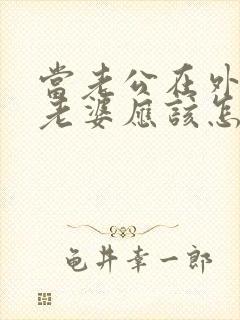 當老公在外
老婆應該怎
龟井幸一郎